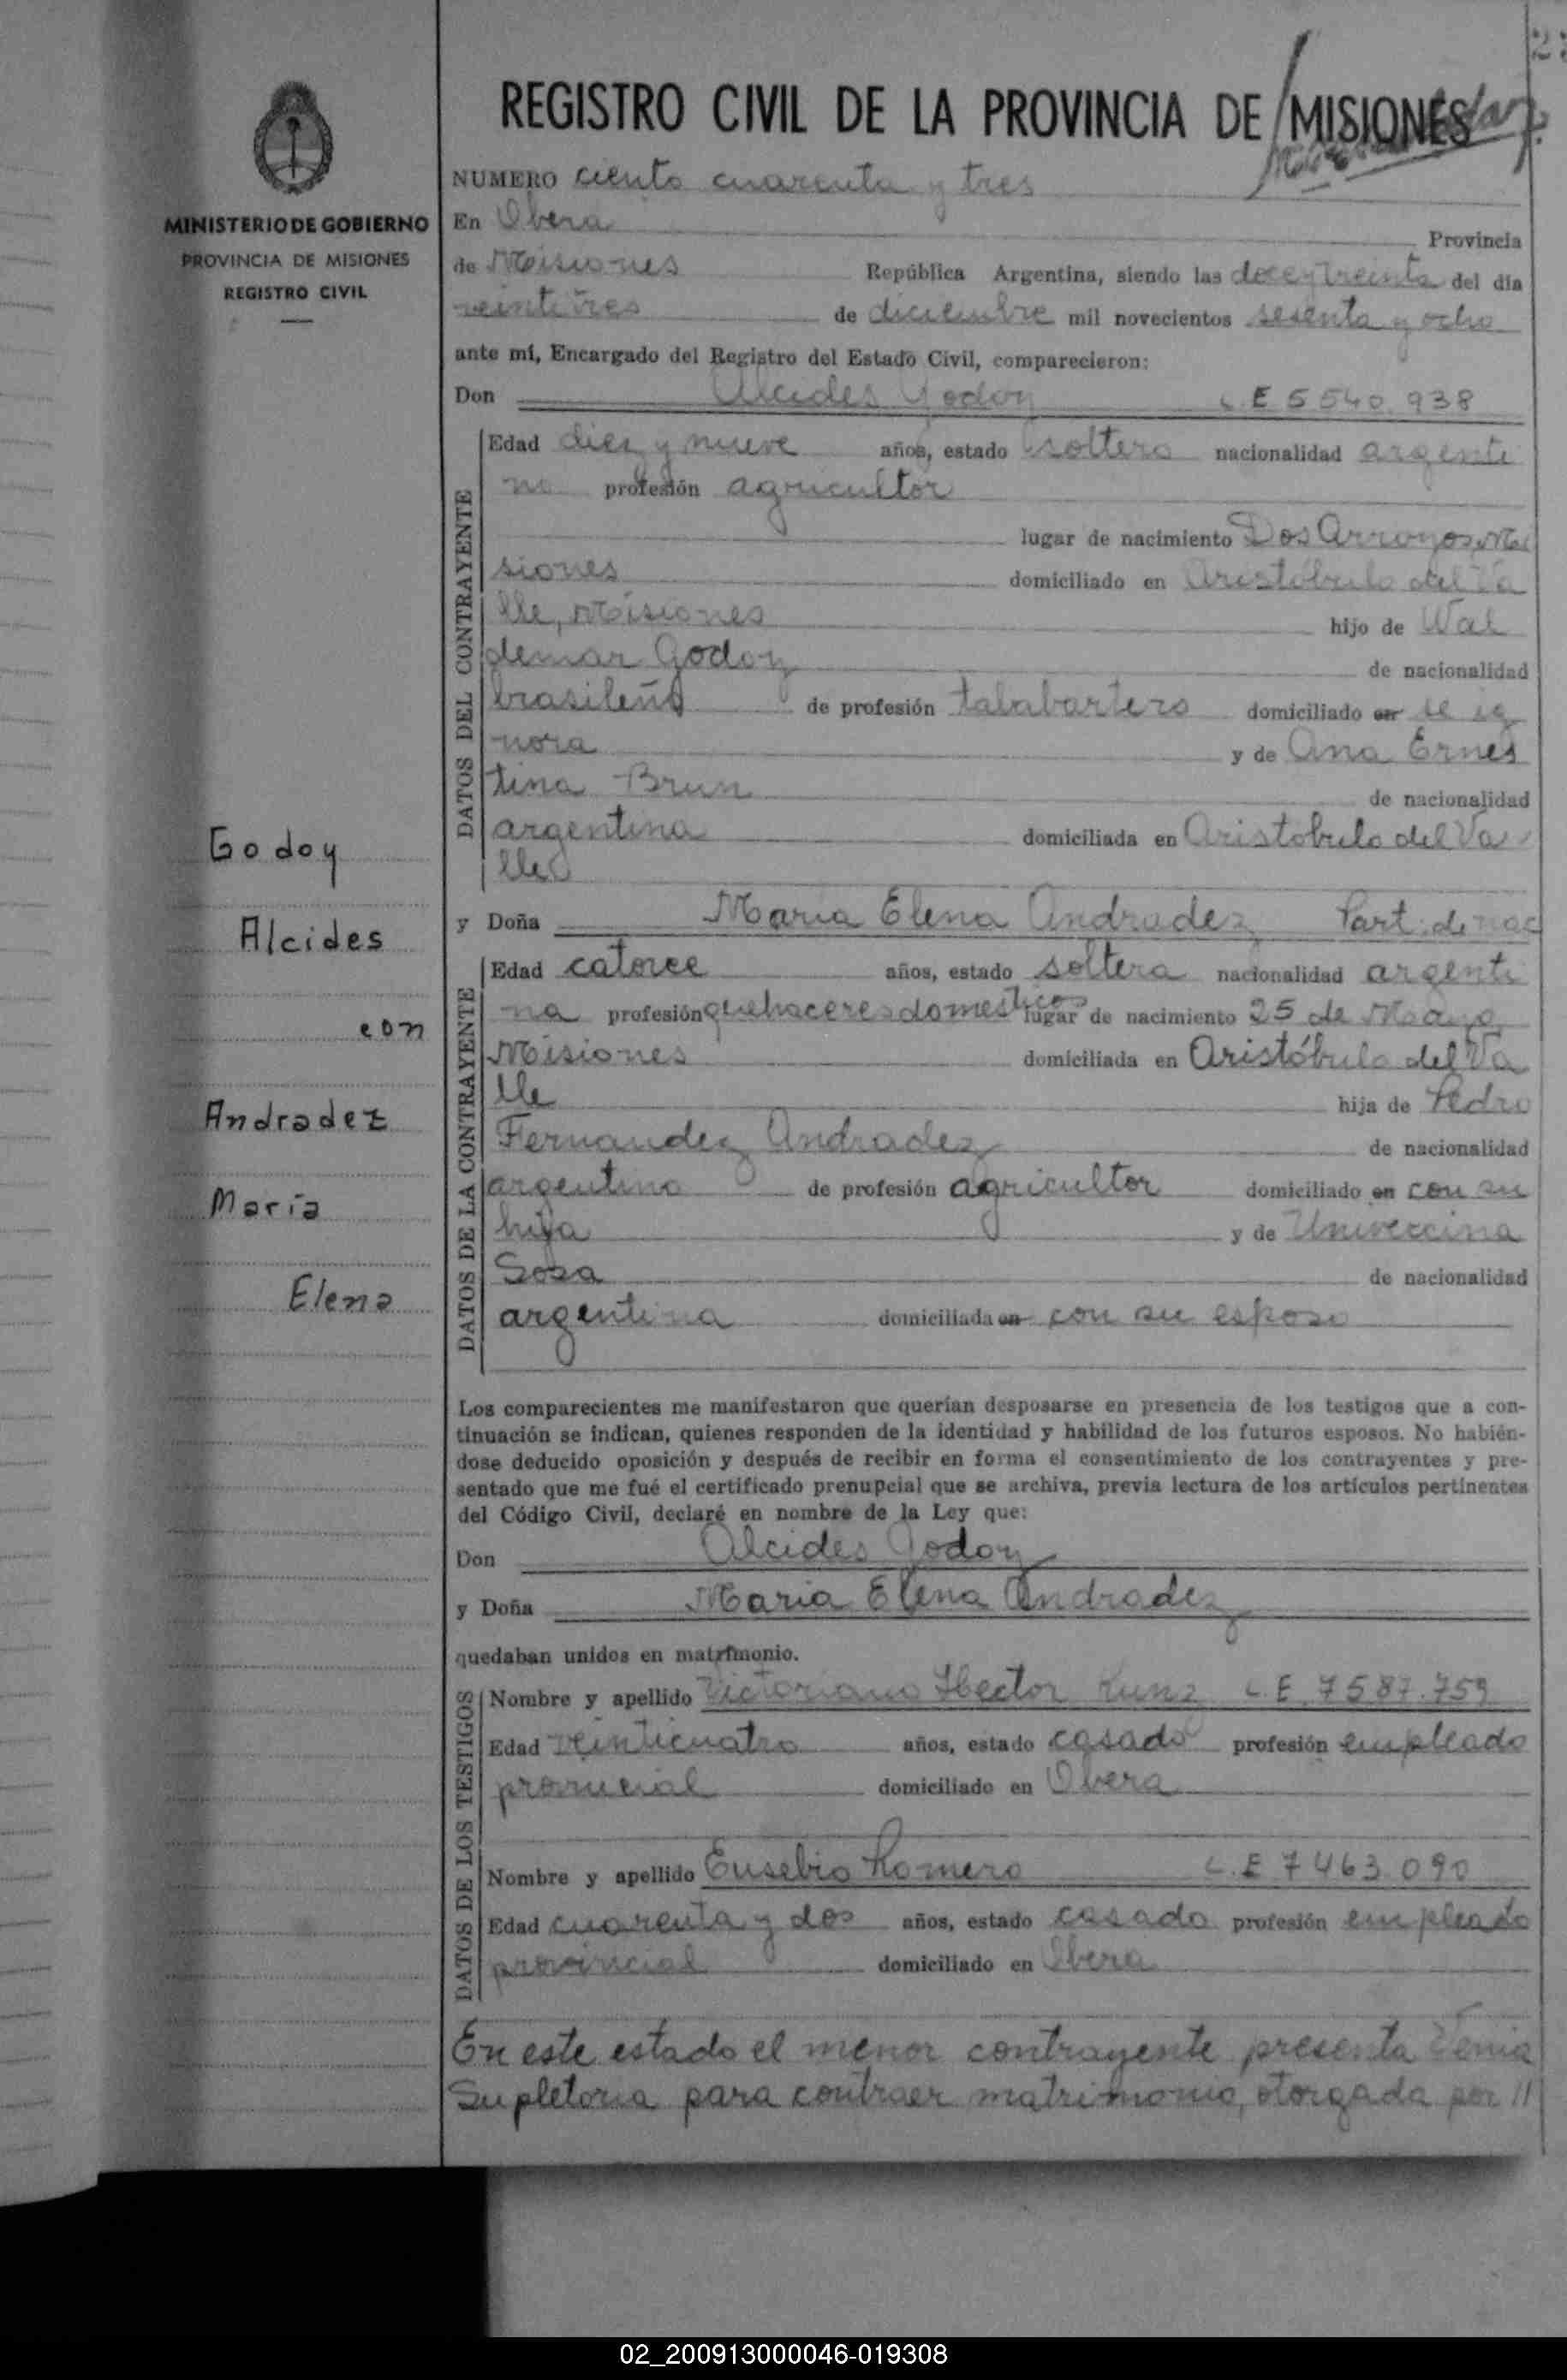 REGISTRO CIVIL DE LA PROVINCIA DE MISIONES
MINISTERIO DE GOBIERNO
PROVINCIA DE MISIONES
REGISTRO CIVIL
Godoy
Alcides
con
Andradez
María
Elena
NUMERO ciento cuarenta y tres
En Obera Provincia
de Misiones República Argentina, siendo las doce y treinta del día
veintitres de diciembre mil novecientos sesenta y ocho
ante mí, Encargado del Registro del Estado Civil, comparecieron:
Don Alcides Godoy L.E 5540.938
DATOS DEL CONTRAYENTE
Edad diez y nueve años, estado soltero nacionalidad argenti
no profesión agricultor
lugar de nacimiento Dos Arroyos, Mi
siones domiciliado en Aristóbulo del Va
lle, Misiones hijo de Wal
demar Godoy de nacionalidad
brasileño de profesión talabartero domiciliado en se ig
nora y de Ana Ernes
tina Brun de nacionalidad
argentina domiciliada en Aristobulo del Va
lle
y Doña Maria Elena Andradez Part. de nac
DATOS DE LA CONTRAYENTE
Edad catorce años, estado soltera nacionalidad argenti
na profesión quehaceres domesticos lugar de nacimiento 25 de Mayo,
Misiones domiciliada en Aristóbulo del Va
lle hija de Pedro
Fernandez Andradez de nacionalidad
argentino de profesión agricultor domiciliado en con su
hija y de Univercina
Sosa de nacionalidad
argentina domiciliada en con su esposo
Los comparecientes me manifestaron que querían desposarse en presencia de los testigos que a con-
tinuación se indican, quienes responden de la identidad y habilidad de los futuros esposos. No habién-
dose deducido oposición y después de recibir en forma el consentimiento de los contrayentes y pre-
sentado que me fué el certificado prenupcial que se archiva, previa lectura de los artículos pertinentes
del Código Civil, declaré en nombre de la Ley que:
Don Alcides Godoy
y Doña Maria Elena Andradez
quedaban unidos en matrimonio.
DATOS DE LOS TESTIGOS
Nombre y apellido Victoriano Hector L.E. 7587.759
Edad veinticuatro años, estado casado profesión empleado
provincial domiciliado en Obera
Nombre y apellido Eusebio Romero L.E 7463.090
Edad cuarenta y dos años, estado casado profesión empleado
provincial domiciliado en Obera
En este estado el menor contrayente presenta Venia
Supletoria para contraer matrimonio, otorgada por //
02_200913000046-019308